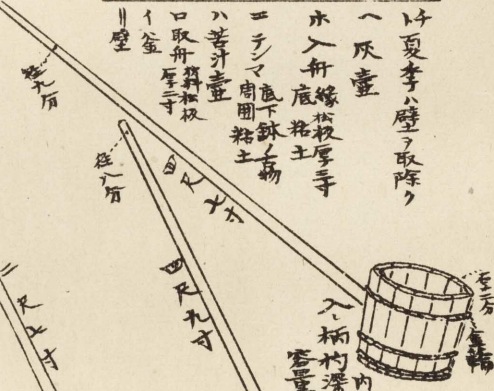 チ 夏季ハ壁ヲ取除ク
ヘ 灰壷
ホ 入舟 縁松板厚三寸
底粘土
ニ テンマ 底下鉢ノ上物
周囲粘土
ハ 苦汁壷
ロ 取舟 材料松板
厚二寸
イ 釜
〃壁
径九分
径八分
四尺七寸
四尺九寸
二尺七寸
入柄杓深
容量
内